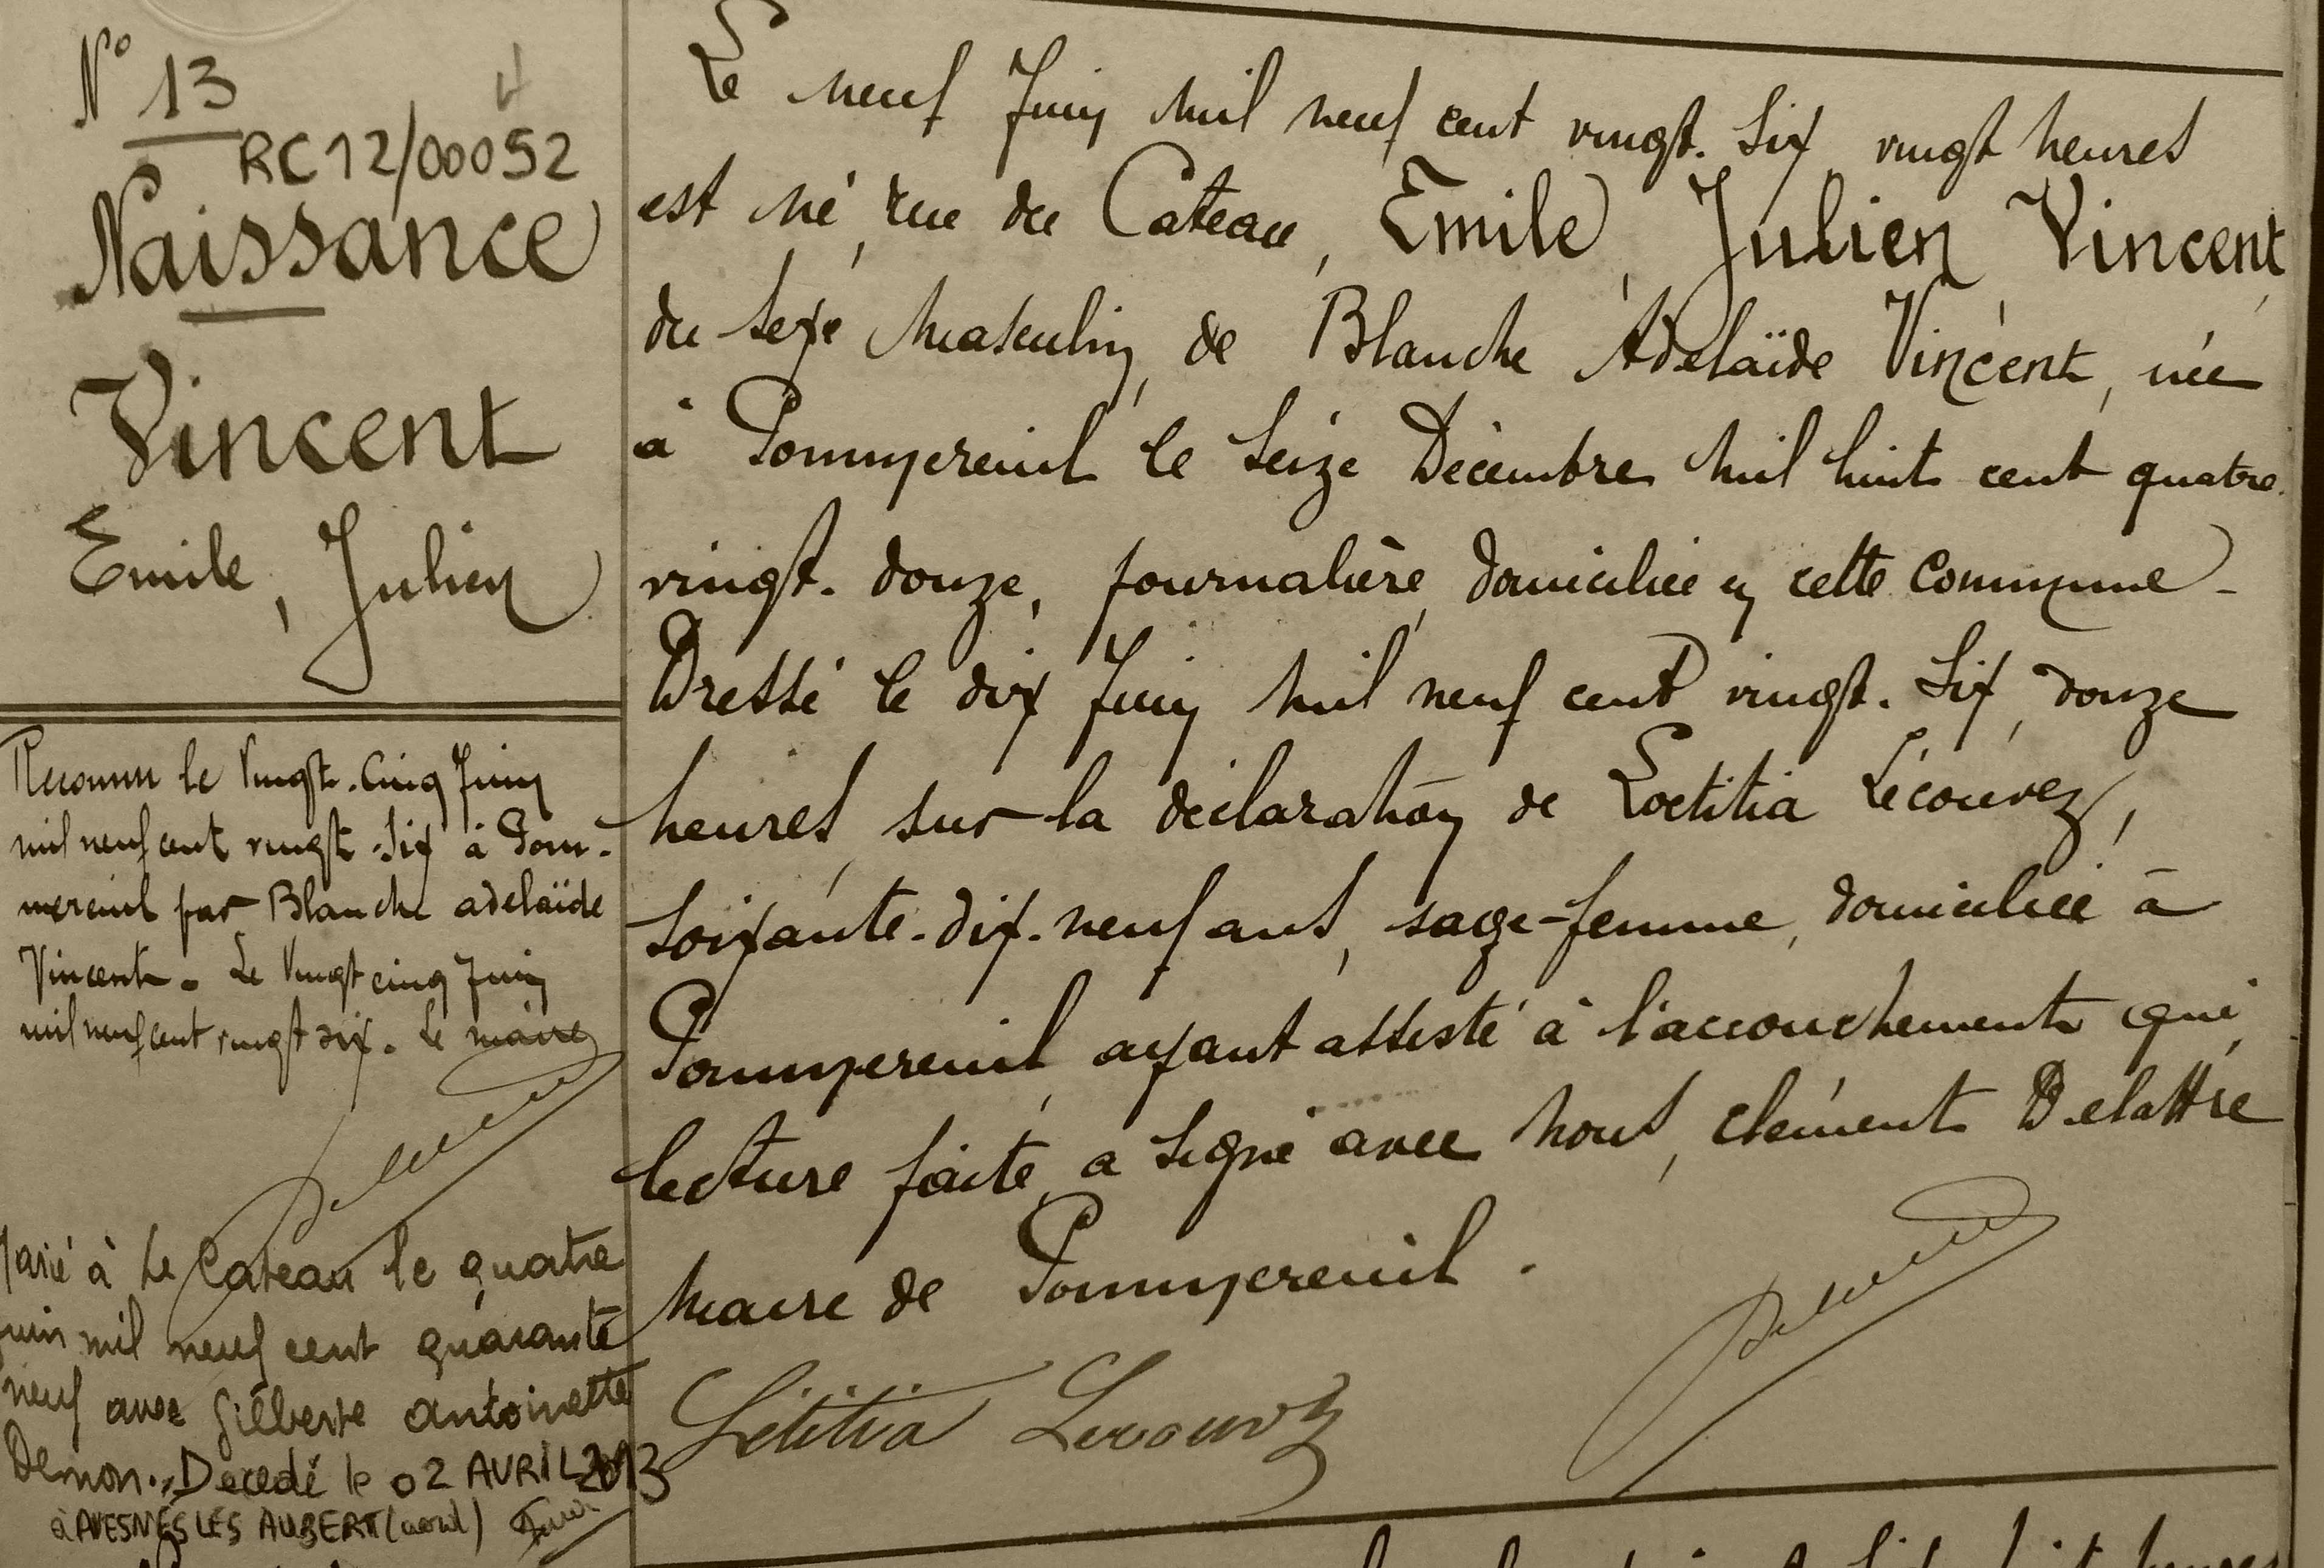 N° 13
RC 12/00052
Naissance
Vincent
Emile, Julien
Reconnu le vingt-cinq Juin
mil neuf cent vingt-six à Pom-
mereuil par Blanche adelaïde
Vincent. Le vingt cinq Juin
mil neuf cent vingt six. Le maire
Marié à Le Cateau le quatre
juin mil neuf cent quarante
neuf avec Gilberte antoinette
Demon. Decedé le 02 AVRIL 2013
à AVESNES LES AUBERT (nord)
Le neuf Juin mil neuf cent vingt-six vingt heures
est né, rue du Cateau, Emile, Julien Vincent,
du sexe masculin, de Blanche Adelaïde Vincent, née
à Pommereuil le seize Décembre mil huit cent quatre
vingt-douze, journalière, domiciliée en cette commune -
Dressé le dix Juin mil neuf cent vingt-six, douze
heures, sur la déclaration de Loetitia Lécouvez,
soixante-dix-neuf ans, sage-femme, domiciliée à
Pommereuil, ayant assisté à l'accouchement qui,
lecture faite, a signé avec nous, clément Delattre
maire de Pommereuil.
Létitia Lecouvez